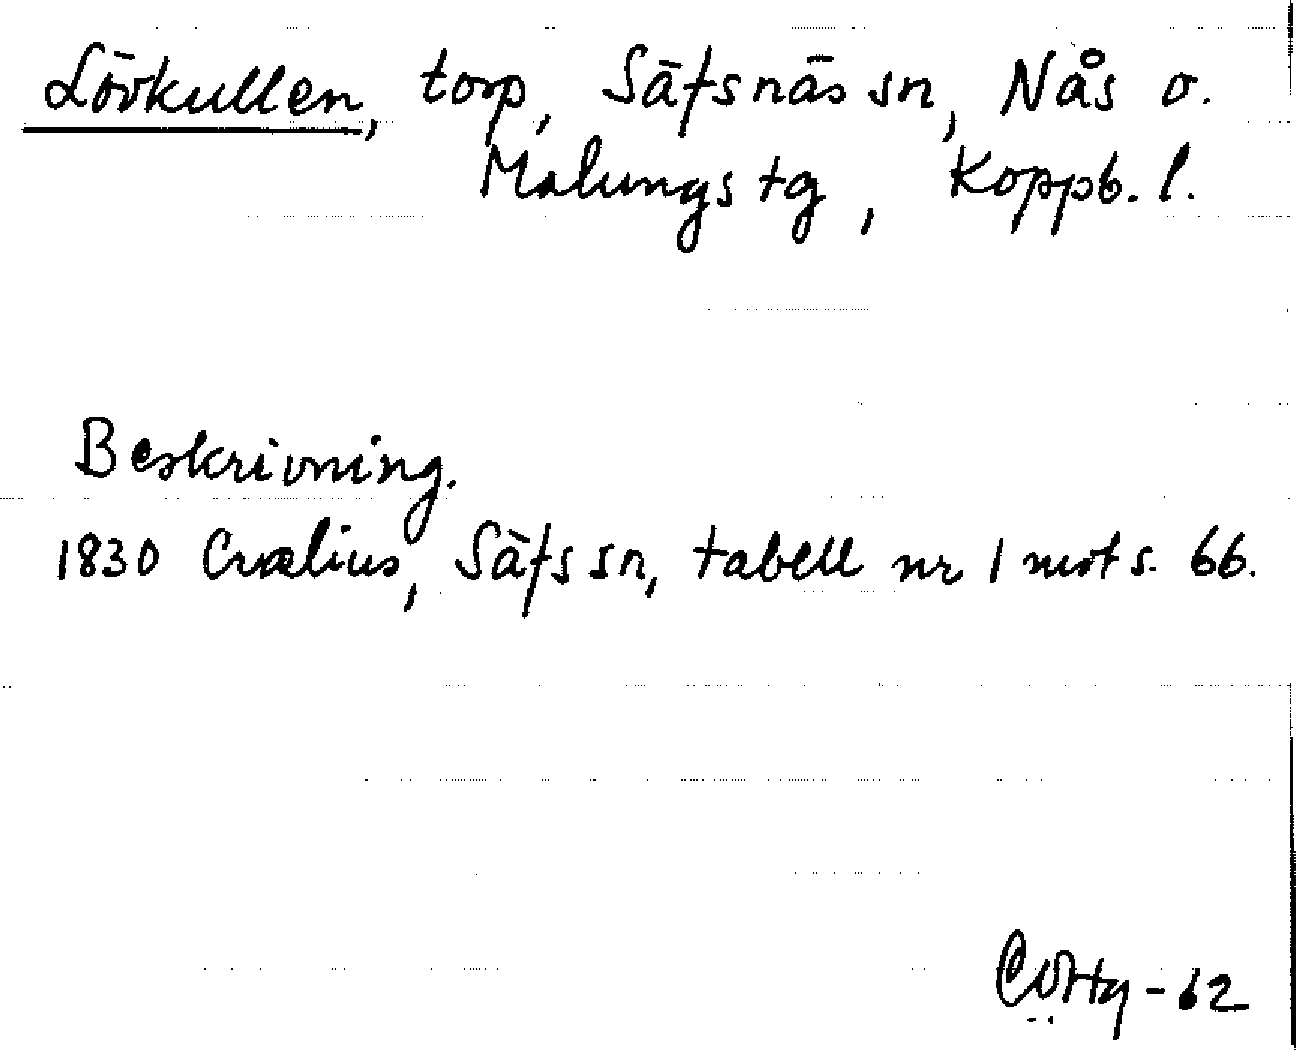 Lövkullen, torp, Säfsnäs sn, Nås o.
Malungs tg, Koppb. l.
Beskrivning.
1830 Crælius, Säfs sn, tabell nr 1 mot s. 66.
-62